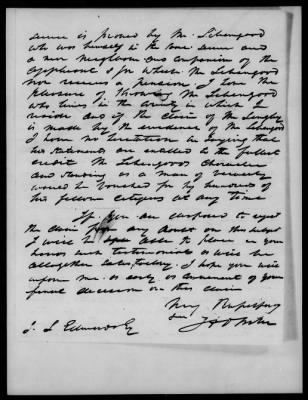 service is proved by Mr. Libengood
who was himself in the same service and
a near neighbour and companion of the
applicant & for which Mr Libengood
now receives a pension. I have the
pleasure of knowing Mr Libengood
who lives in the County in which I
reside and if the claim of Mr
is made by the evidence of Mr Libengood
I have no hesitation in saying that
his statements are entitled to the fullest
credit Mr Libengoods Character
and standing as a man of veracity
would be vouched for by hundreds of
his fellow citizens at any time
If you are disposed to reject
the claim for any doubt on this subject
I will be able to place in your
hands such testimonials as will be
altogether satisfactory. I hope you will
inform me as early as convenient of your
final decision on this claim
Very Respectfully
J. L. Edwards Esq